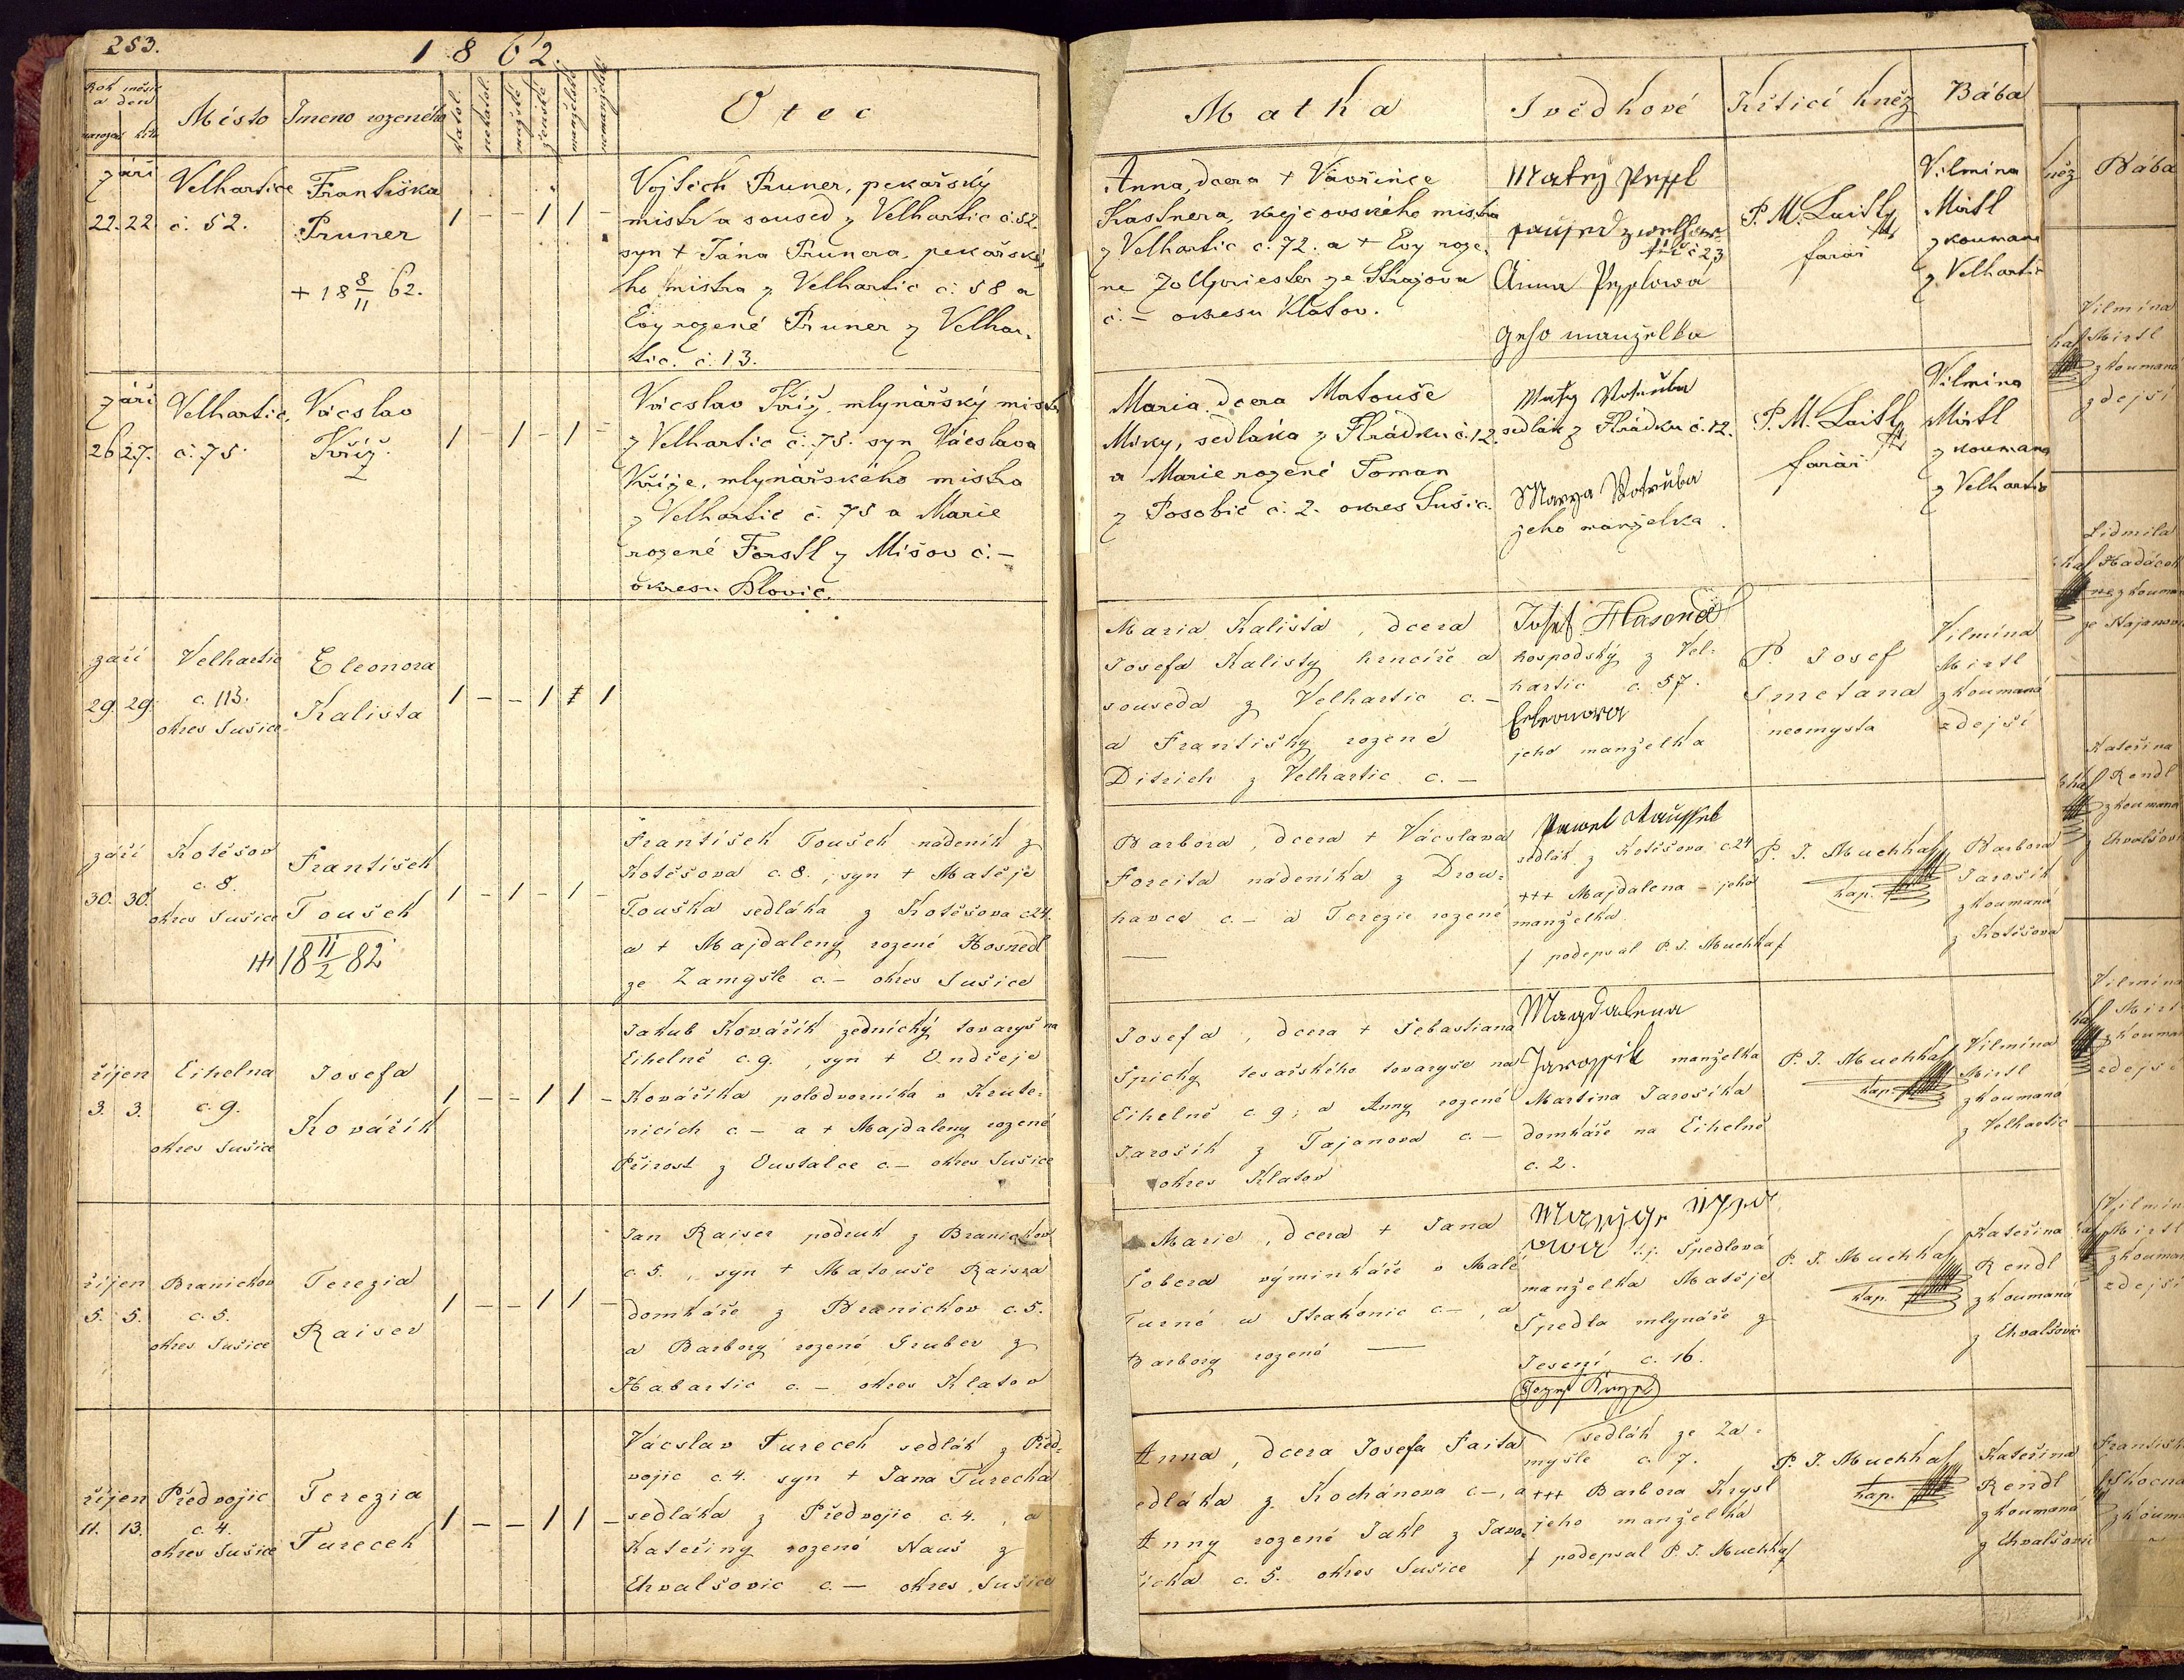 253.
1862.
Rok měsíc
a den
narození křtu
Místo
Imeno rozeného
katol.
nekatol.
mužské
ženské
manželské
nemanželské
Otec
Matka
Svědkové
Křticí kněz
Bába
září
22. 22.
Velhartice
č. 52.
Františka
Pruner
+ 18 8/11 62.
1 - - 1 1 -
Vojtěch Pruner, pekařský
mistr a soused z Velhartic č. 52.
syn + Jána Prunera, pekařské-
ho mistra z Velhartic č. 58 a
Evy rozené Pruner z Velhar-
tic. č. 13.
Anna, dcera + Vavřince
Kastnera, krejčovského mistra
z Velhartic č. 72. a + Evy roze-
né Zollpriester ze Strajova
č. - okresu Klatov.
Matěj Peppl
č 23
Anna Pepplowa
geho manzelka
P. M. Laitl
farář
Vilmina
Mirtl
zkoumaná
z Velhartic
září
26 27.
Velhartic.
č. 75.
Václav
Kříž.
1 - 1 - 1 -
Václav Kříž, mlynářský mistr
z Velhartic č. 75. syn Václava
Kříže, mlynářského mistra
z Velhartic č. 75 a Marie
rozené Forstl z Mišov č. -
okresu Blovic.
Maria dcera Matouše
Míky, sedláka z Hrádku č. 12.
a Marie rozené Toman
z Posobic č. 2. okres Sušic.
Matěj Votruba
sedlák z Hrádku č. 12.
Marya Votruba
jeho manželka.
P. M. Laitl
farář
Vilmina
Mirtl
zkoumaná
z Velhartic
září
29. 29.
Velhartic
č. 113.
okres Sušice
Eleonora
Kalista
1 - - 1 1 1
Maria Kalista, dcera
Josefa Kalisty hrnčíře a
souseda z Velhartic c. -
a Františky rozené
Ditrich z Velhartic c. -
Josef Hasenöl
hospodský z Vel-
hartic c. 57.
Eleonora
jeho manželka
P. Josef
Smetana
neomysta
Vilmína
Mirtl
zkoumaná
zdejší
září
30. 30.
Kotěšov
c. 8.
okres Sušice
František
Toušek
+++ 18 11/2 82
1 - 1 - 1 -
František Toušek nádeník z
Kotěšova c. 8. , syn + Matěje
Touška sedláka z Kotěšova c. 24.
a + Majdaleny rozené Hosnedl
ze Zamyšle c. - okres Sušice
Barbora, dcera + Václava
Foreita nádeníka z Drou-
havce c. - a Terezie rozené
—
Pawel
sedlák z Kotěšova c. 24
+++ Majdalena - jeho
manželka
f podepsal P. J. Muchka f
P. J. Muchka
kap.
Barbora
Jarošík
zkoumaná
z Kotěšova
říjen
3. 3.
Cihelna
c. 9.
okres Sušice
Josefa
Kovářík
1 - - 1 1 -
Jakub Kovářík zednický tovaryš na
Cihelně c. 9. , syn + Ondřeje
Kováříka polodvorníka v Krute-
nicích c. - a + Majdaleny rozené
Přirost z Oustalce c. - okres Sušice
Josefa, dcera + Sebastiana
Špicky tesařského tovaryše na
Cihelně c 9; a Anny rozené
Jarošík z Tajanova c. -
okres Klatov
Magdalena
Jaroššik manželka
Martina Jarošíka
domkáře na Cihelně
c. 2.
P. J. Muchka
kap.
Vilmína
Mirtl
zkoumaná
z Velhartic
říjen
5. 5.
Branickov
c. 5.
okres Sušice
Terezia
Raiser
1 - - 1 1 -
Jan Raiser podruh z Branickov
c 5. , syn + Matouše Raisra
domkáře z Branickov c. 5.
a Barbory rozené Gruber z
Habartic c. - okres Klatov
Marie, dcera + Jana
Sobera výminkáře v Malé
Turné u Strakonic c - , a
Barbory rozené —
t.j. Špedlová
manželka Matěje
Špedla mlynáře z
Jesení c. 16.
P. J. Muchka
kap.
Kateřina
Rendl
zkoumaná
z Chvalšovic
říjen
11. 13.
Předvojic
c. 4.
okres Sušice
Terezia
Tureček
1 - - 1 1 -
Václav Tureček sedlák z Před-
vojic c. 4. syn + Jana Turečka
sedláka z Předvojic c. 4. , a
Kateřiny rozené Nauš z
Chvalšovic c. - okres Sušice
Anna, dcera Josefa Faita
edláka z Kochánova c - , a
Anny rozené Jakl z Javo-
íčka c. 5. okres Sušice
Jozef Krysl
sedlák ze Za-
myšle c. 7.
+++ Barbora Krysl
jeho manželka
f podepsal P. J. Muchka f
P. J. Muchka
kap.
Kateřina
Rendl
zkoumaná
z Chvalšovic
něz
Bába
Vilmína
Mirtl
zkoumaná
zdejší
Lidmila
Kateřina
Rendl
zkoumaná
Chvalšovi
Vilmína
Mirt
zkouma
zdejší
Vilmín
Mirtl
zkouma
zdejší
Františk